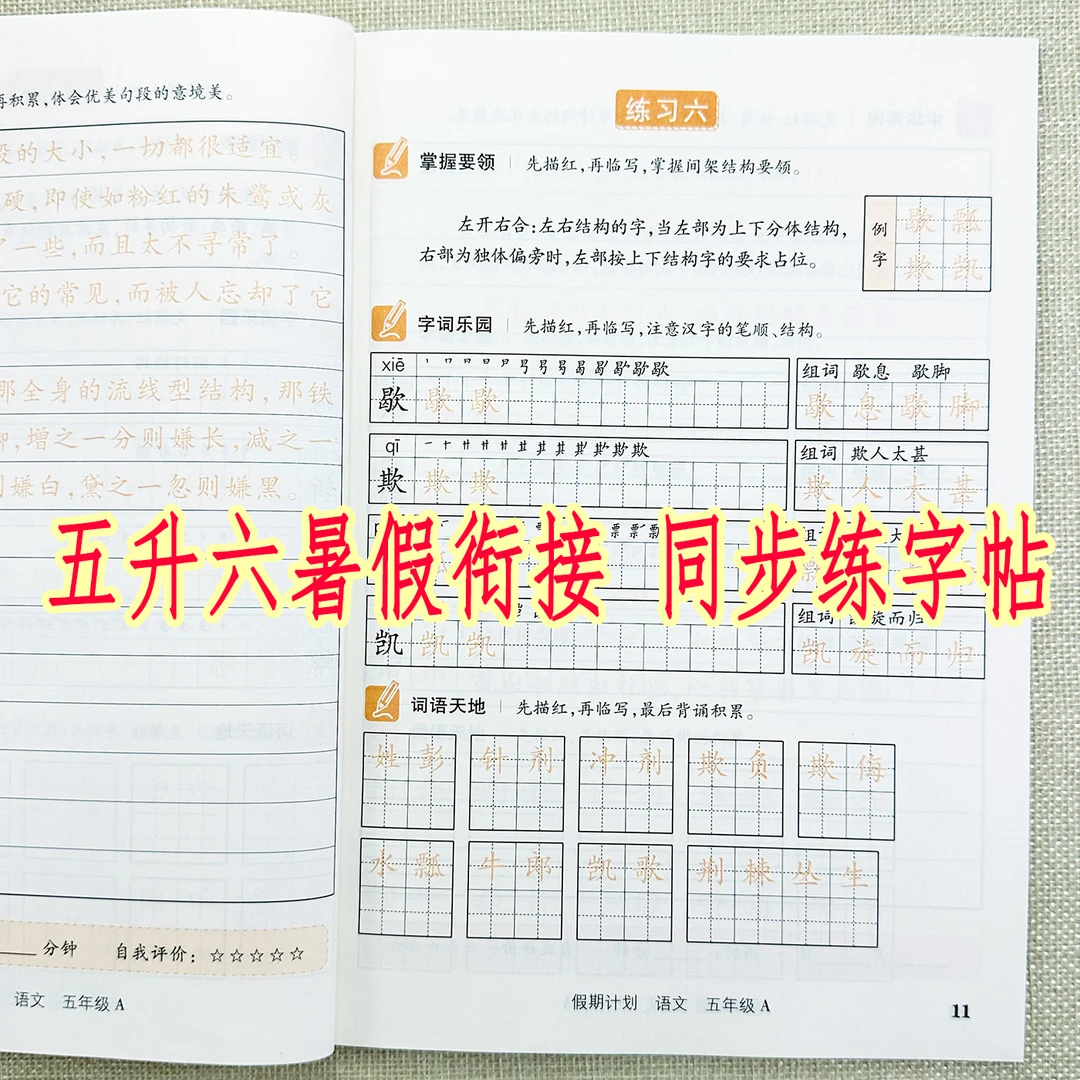 再积累,体会优美句段的意境美。
段的大小,一切都很适宜。
硬,即使如粉红的朱鹭或灰
了一些,而且太不寻常了。
它的常见,而被人忘却了它
那全身的流线型结构,那铁
脚,增之一分则嫌长,减之一
则嫌白,黛之一忽则嫌黑。
分钟 自我评价:☆☆☆☆☆
语文 五年级A
练习六
掌握要领 先描红,再临写,掌握间架结构要领。
左开右合:左右结构的字,当左部为上下分体结构,
右部为独体偏旁时,左部按上下结构字的要求占位。
例字
歇 瓢
欺 凯
字词乐园 先描红,再临写,注意汉字的笔顺、结构。
xiē
歇 歇 歇
组词 歇息 歇脚
歇 息 歇 脚
qī
欺 欺 欺
组词 欺人太甚
欺 人 太 甚
五升六暑假衔接 同步练字帖
凯 凯 凯
组词 凯旋而归
凯 旋 而 归
词语天地 先描红,再临写,最后背诵积累。
姓彭 针剂 冲剂 欺负 欺侮
水瓢 牛郎 凯歌 荆棘丛生
假期计划 语文 五年级A 11